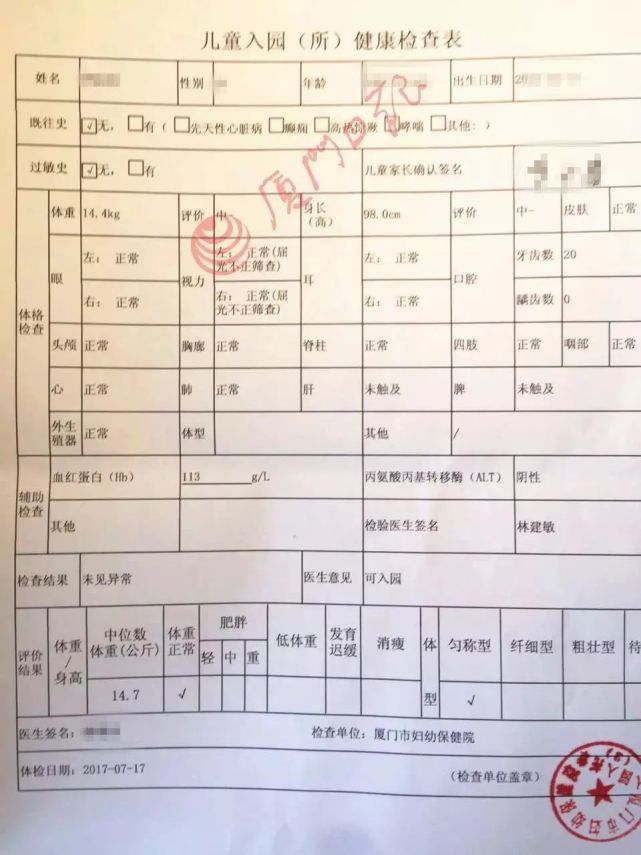 儿童入园（所）健康检查表
姓名 性别 年龄 出生日期 20
既往史 ☑无，☐有（☐先天性心脏病 ☐癫痫 ☐高热惊厥 ☐哮喘 ☐其他：）
过敏史 ☑无，☐有 儿童家长确认签名
厦门日记
体格检查
体重 14.4kg 评价 中 身长（高） 98.0cm 评价 中- 皮肤 正常
眼 左：正常 视力 左：正常(屈光不正筛查) 耳 左：正常 口腔 牙齿数 20
右：正常 右：正常(屈光不正筛查) 右：正常 龋齿数 0
头颅 正常 胸廓 正常 脊柱 正常 四肢 正常 咽部 正常
心 正常 肺 正常 肝 未触及 脾 未触及
外生殖器 正常 体型 其他 /
辅助检查
血红蛋白（Hb） 113 g/L 丙氨酸丙基转移酶（ALT） 阴性
其他 检验医生签名 林建敏
检查结果 未见异常 医生意见 可入园
评价结果 体重/身高 中位数体重(公斤) 体重正常 肥胖 低体重 发育迟缓 消瘦 体型 匀称型 纤细型 粗壮型 待
轻 中 重
14.7 √ √
医生签名： 检查单位：厦门市妇幼保健院
体检日期：2017-07-17 (检查单位盖章)
门市妇幼保健院